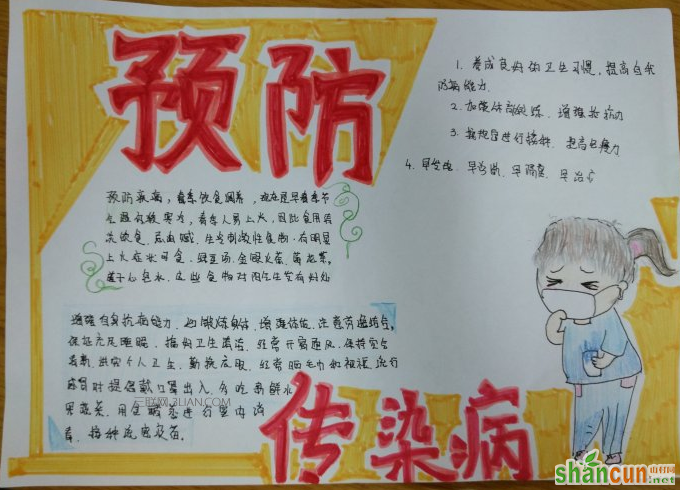 预防
传染病
1. 养成良好的卫生习惯，提高自我
防病能力
2. 加强体育锻炼、增强抵抗力
3. 按规定进行接种、提高免疫力
4. 早发现、早诊断、早隔离、早治疗
预防疾病，春季饮食调养，现在是早春季节
生理
春季人易上火，因此食用清
淡饮食，忌油腻、生冷刺激性食物，有明显
上火症状可食，绿豆汤、金银花茶、菊花茶、
莲子心泡水、这些食物对
增强自身抗病能力，
锻炼身体，增强体质，注意劳逸结合，
保证充足睡眠、搞好卫生清洁，经常开窗通风，保持室内
清新，讲究个人卫生，勤换衣服，经常晒毛巾和被褥，流行
感冒时提倡戴口罩出入，多吃新鲜水
果蔬菜，用
进行室内消
毒、接种流感疫苗。
三联网 3LIAN.COM
shancun
山村网
.net